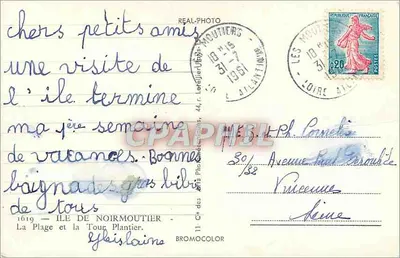 REAL-PHOTO
chers petits amis
une visite de
l'île termine
ma 1ère semaine
de vacances. Bonnes
baignades gros bibi
de tous
Ghislaine
1619 - ILE DE NOIRMOUTIER -
La Plage et la Tour Plantier.
BROMOCOLOR
LES MOUTIERS
18 H-15
31-7
1961
LOIRE ATLANTIQUE
LES MOUTIERS
18 H
31
LOIRE
REPUBLIQUE FRANÇAISE
0,20
POSTES
CPARHIL.COM
et Ph.
30/32 Avenue Paul
Vincennes
Seine